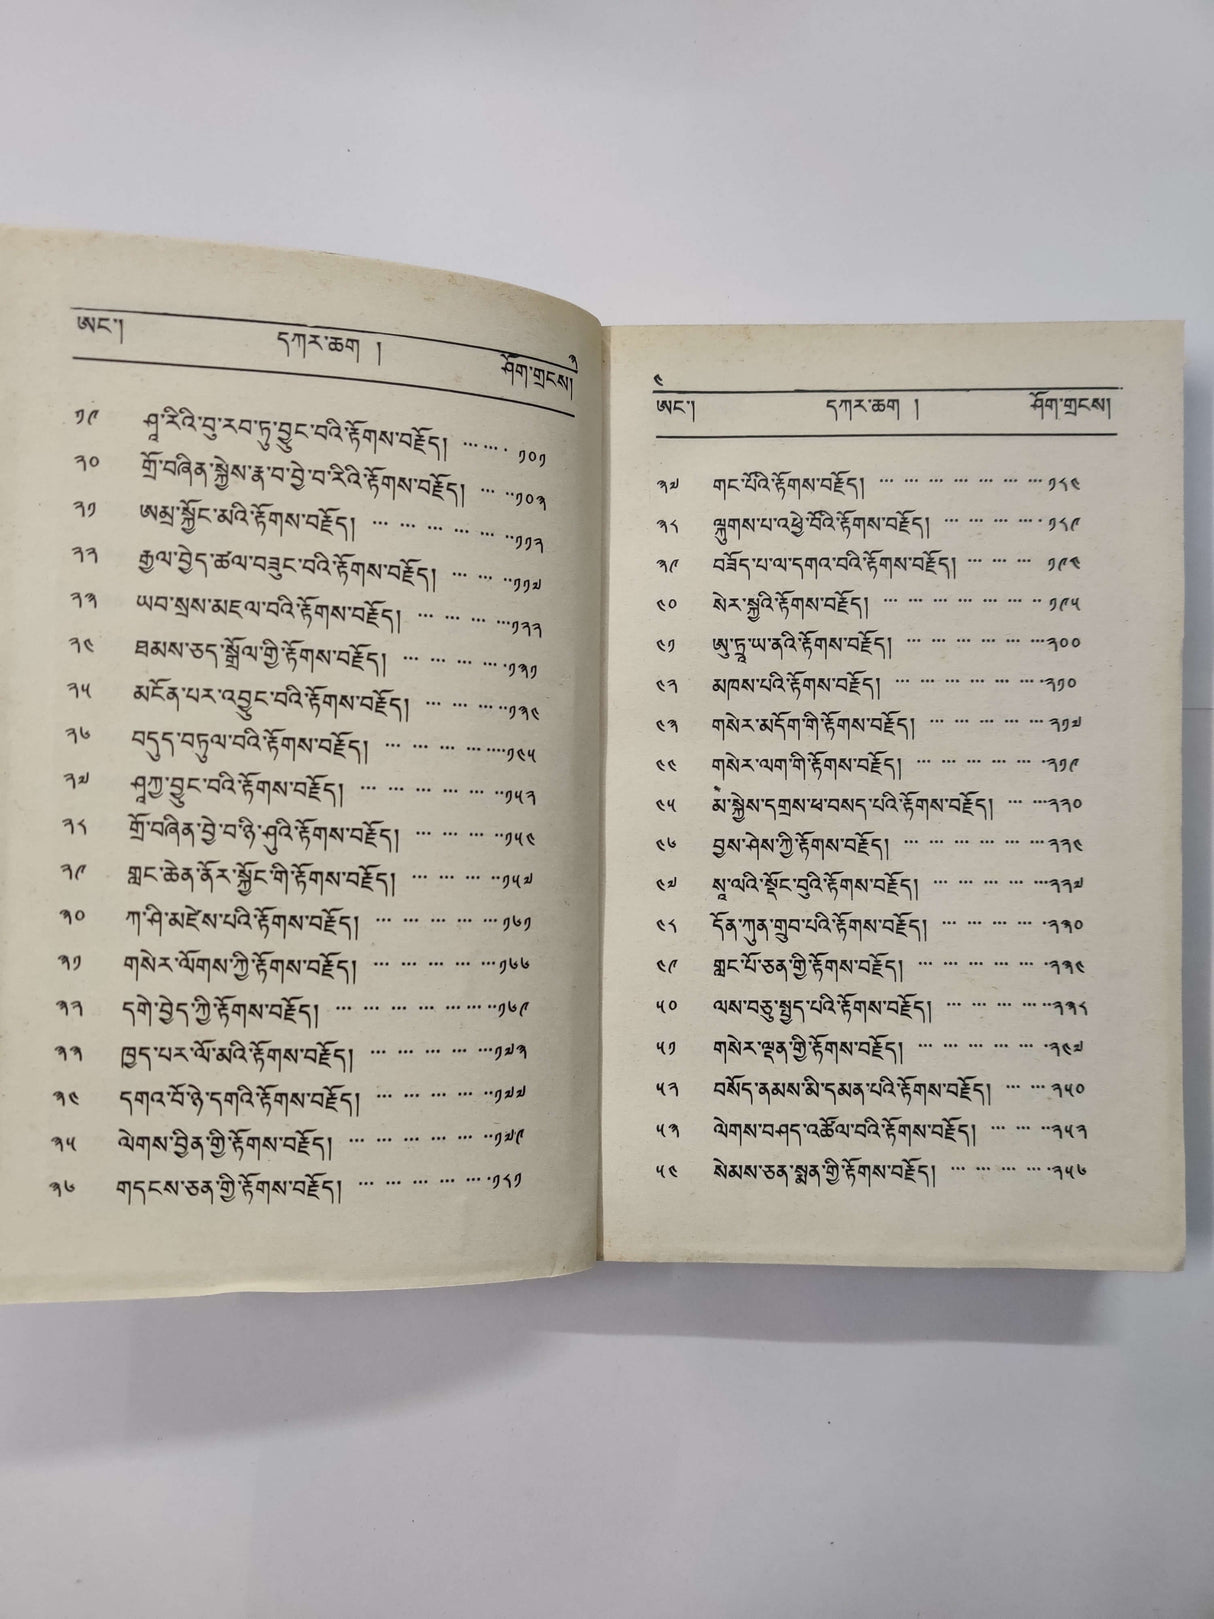 ༣
ཨང་། དཀར་ཆག ། ཤོག་གྲངས།
༡༩ ཤཱ་རིའི་བུ་རབ་ཏུ་བྱུང་བའི་རྟོགས་བརྗོད། … … · ༡༠༡
༢༠ གྲོ་བཞིན་སྐྱེས་རྣ་བ་བྱེ་བ་རིའི་རྟོགས་བརྗོད། … ··༡༠༣
༢༡ ཨམྲ་སྐྱོང་མའི་རྟོགས་བརྗོད། … … … … ··༡༡༢
༢༢ རྒྱལ་བྱེད་ཚལ་བཟུང་བའི་རྟོགས་བརྗོད། … … ··༡༡༧
༢༣ ཡབ་སྲས་མཇལ་བའི་རྟོགས་བརྗོད། … … … …༡༢༢
༢༤ ཐམས་ཅད་སྒྲོལ་གྱི་རྟོགས་བརྗོད། … … … …·༡༣༡
༢༥ མངོན་པར་འབྱུང་བའི་རྟོགས་བརྗོད། … … … ··༡༣༤
༢༦ བདུད་བཏུལ་བའི་རྟོགས་བརྗོད། … … … … ····༡༤༥
༢༧ ཤཱཀྱ་བྱུང་བའི་རྟོགས་བརྗོད། … … … … … ··༡༥༢
༢༨ གྲོ་བཞིན་བྱེ་བ་ཉི་ཤུའི་རྟོགས་བརྗོད། … … … ··༡༥༤
༢༩ གླང་ཆེན་ནོར་སྐྱོང་གི་རྟོགས་བརྗོད། … … … ··༡༥༧
༣༠ ཀ་ཤི་མཛེས་པའི་རྟོགས་བརྗོད། … … … … …༡༦༡
༣༡ གསེར་ལོགས་ཀྱི་རྟོགས་བརྗོད། … … … … …༡༦༦
༣༢ དགེ་བྱེད་ཀྱི་རྟོགས་བརྗོད། … … … … … ··༡༦༩
༣༣ ཁྱད་པར་ལོ་མའི་རྟོགས་བརྗོད། … … … … …༡༧༣
༣༤ དགའ་བོ་ཉེ་དགའི་རྟོགས་བརྗོད། … … … … ··༡༧༧
༣༥ ལེགས་བྱིན་གྱི་རྟོགས་བརྗོད། … … … … … ··༡༧༩
༣༦ གདངས་ཅན་གྱི་རྟོགས་བརྗོད། … … … … … ·༡༨༡
༤
ཨང་། དཀར་ཆག ། ཤོག་གྲངས།
༣༧ གང་པོའི་རྟོགས་བརྗོད། … … … … … … …༡༨༤
༣༨ ལྐུགས་པ་འཕྱེ་བོའི་རྟོགས་བརྗོད། … … … … ·༡༨༩
༣༩ བཟོད་པ་ལ་དགའ་བའི་རྟོགས་བརྗོད། … … … ༡༩༤
༤༠ སེར་སྐྱའི་རྟོགས་བརྗོད། … … … … … … ·· ༡༩༥
༤༡ ཨུ་ཏྲཱ་ཡ་ནའི་རྟོགས་བརྗོད། … … … … … …༢༠༠
༤༢ མཁས་པའི་རྟོགས་བརྗོད། … … … … … … ·༢༡༠
༤༣ གསེར་མདོག་གི་རྟོགས་བརྗོད། … … … … …༢༡༧
༤༤ གསེར་ལག་གི་རྟོགས་བརྗོད། … … … … … ·༢༡༩
༤༥ མི་སྐྱེས་དགྲས་ཕ་བསད་པའི་རྟོགས་བརྗོད། … …༢༢༠
༤༦ བྱས་ཤེས་ཀྱི་རྟོགས་བརྗོད། … … … … … …༢༢༤
༤༧ སཱ་ལའི་སྡོང་བུའི་རྟོགས་བརྗོད། … … … … …༢༢༧
༤༨ དོན་ཀུན་གྲུབ་པའི་རྟོགས་བརྗོད། … … … … ·༢༣༠
༤༩ གླང་པོ་ཅན་གྱི་རྟོགས་བརྗོད། … … … … … ·༢༣༤
༥༠ ལས་བཅུ་སྤྱད་པའི་རྟོགས་བརྗོད། … … … … ··༢༣༨
༥༡ གསེར་ལྡན་གྱི་རྟོགས་བརྗོད། … … … … … ·༢༤༧
༥༢ བསོད་ནམས་མི་དམན་པའི་རྟོགས་བརྗོད། … … ··༢༥༠
༥༣ ལེགས་བཤད་འཚོལ་བའི་རྟོགས་བརྗོད། … … … ·༢༥༢
༥༤ སེམས་ཅན་སྨན་གྱི་རྟོགས་བརྗོད། … … … … ·༢༥༦